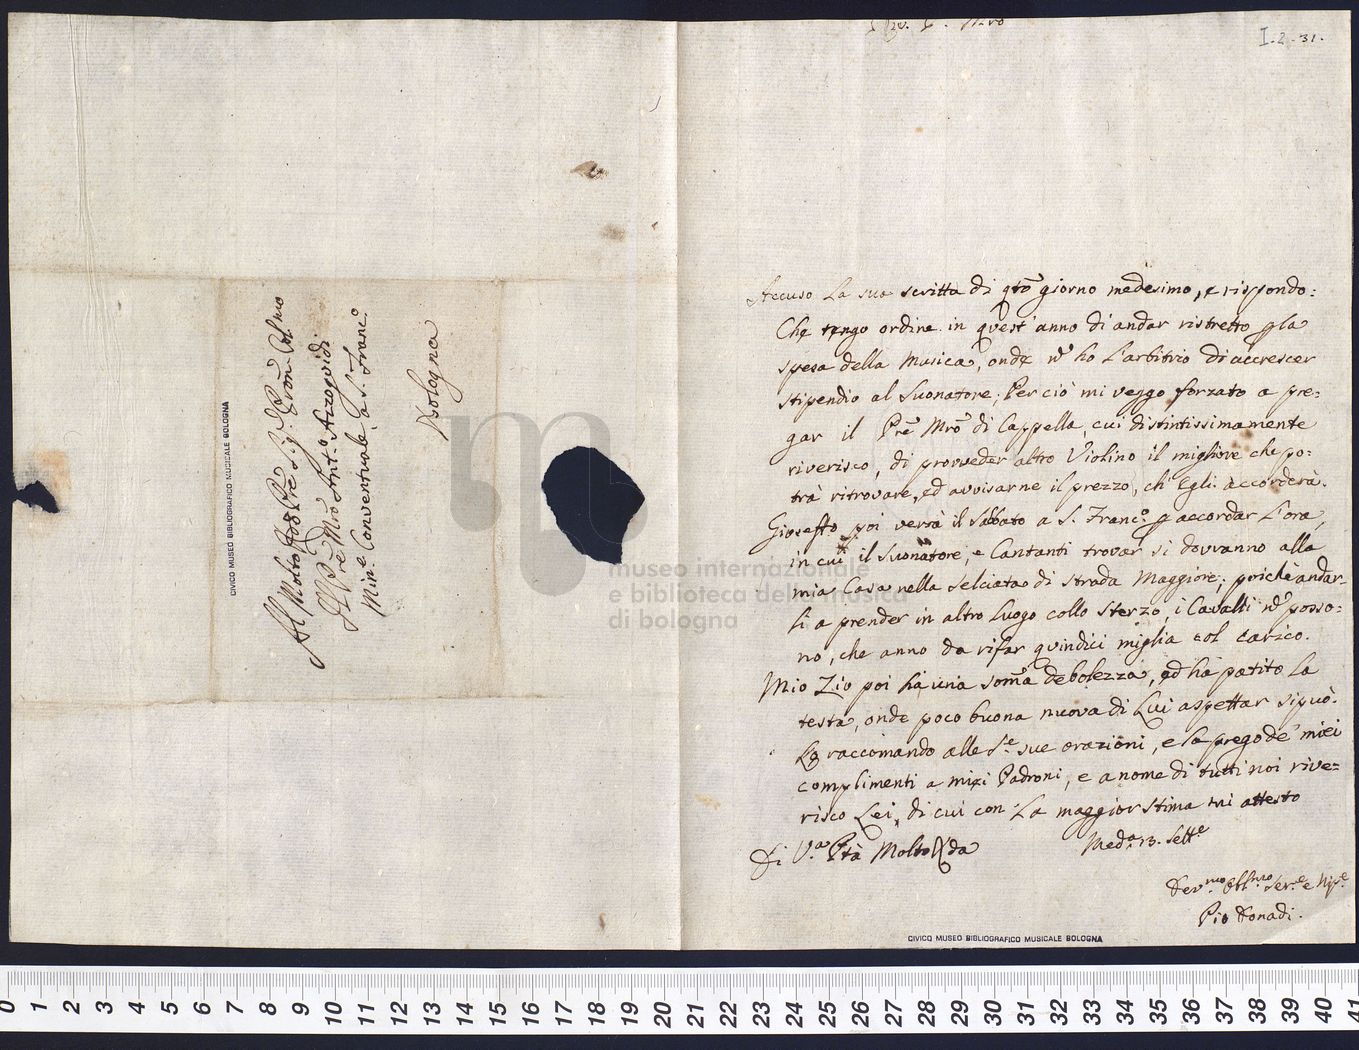 I.2.31.
Accuso la sua scritta di qto giorno medesimo, e rispondo:
Che tengo ordine in quest'anno di andar ristretto p la
spesa della Musica, onde nō ho l'arbitrio di accrescer
stipendio al Suonatore. Perciò mi veggo forzato a pre:
gar il Prē Mrō di Cappella, cui distintissimamente
riverisco, di provveder altro Violino il migliore che po:
trà ritrovare, ed avvisarne il prezzo, ch'Egli accorderà.
Gioseffo poi verrà il Sabbato a S. Franc.o p accordar l'ora,
in cui il Suonatore, e Cantanti trovar si dovranno alla
mia Casa nella Selciata di Strada Maggiore; poichè andar-
li a prender in altro luogo collo sterzo, i Cavalli nō posso:
no, che anno da rifar quindici miglia col carico.
Mio Zio poi ha una soma debolezza, ed ha patito la
testa, onde poco buona nuova di Lui aspettar si può.
Lo raccomando alle S.e sue orazioni, e la prego de' miei
complimenti a miei Padroni, e a nome di tutti noi rive=
risco Lei, di cui con la maggior stima mi attesto
Di V.a Ptà Molto Rda
Med.a 13. Sett.e
Dev.mo Obb.mo Ser.e e Nip.e
Pio Donadi.
Al Molto Rdo Pre Sig. Pron Col.mo
Il Pre Mro Ant.o Azzoguidi
Min.e Conventuale a S. Franc.o
Bologna
CIVICO MUSEO BIBLIOGRAFICO MUSICALE BOLOGNA
CIVICO MUSEO BIBLIOGRAFICO MUSICALE BOLOGNA
museo internazionale
e biblioteca della musica
di bologna
0 1 2 3 4 5 6 7 8 9 10 11 12 13 14 15 16 17 18 19 20 21 22 23 24 25 26 27 28 29 30 31 32 33 34 35 36 37 38 39 40 41